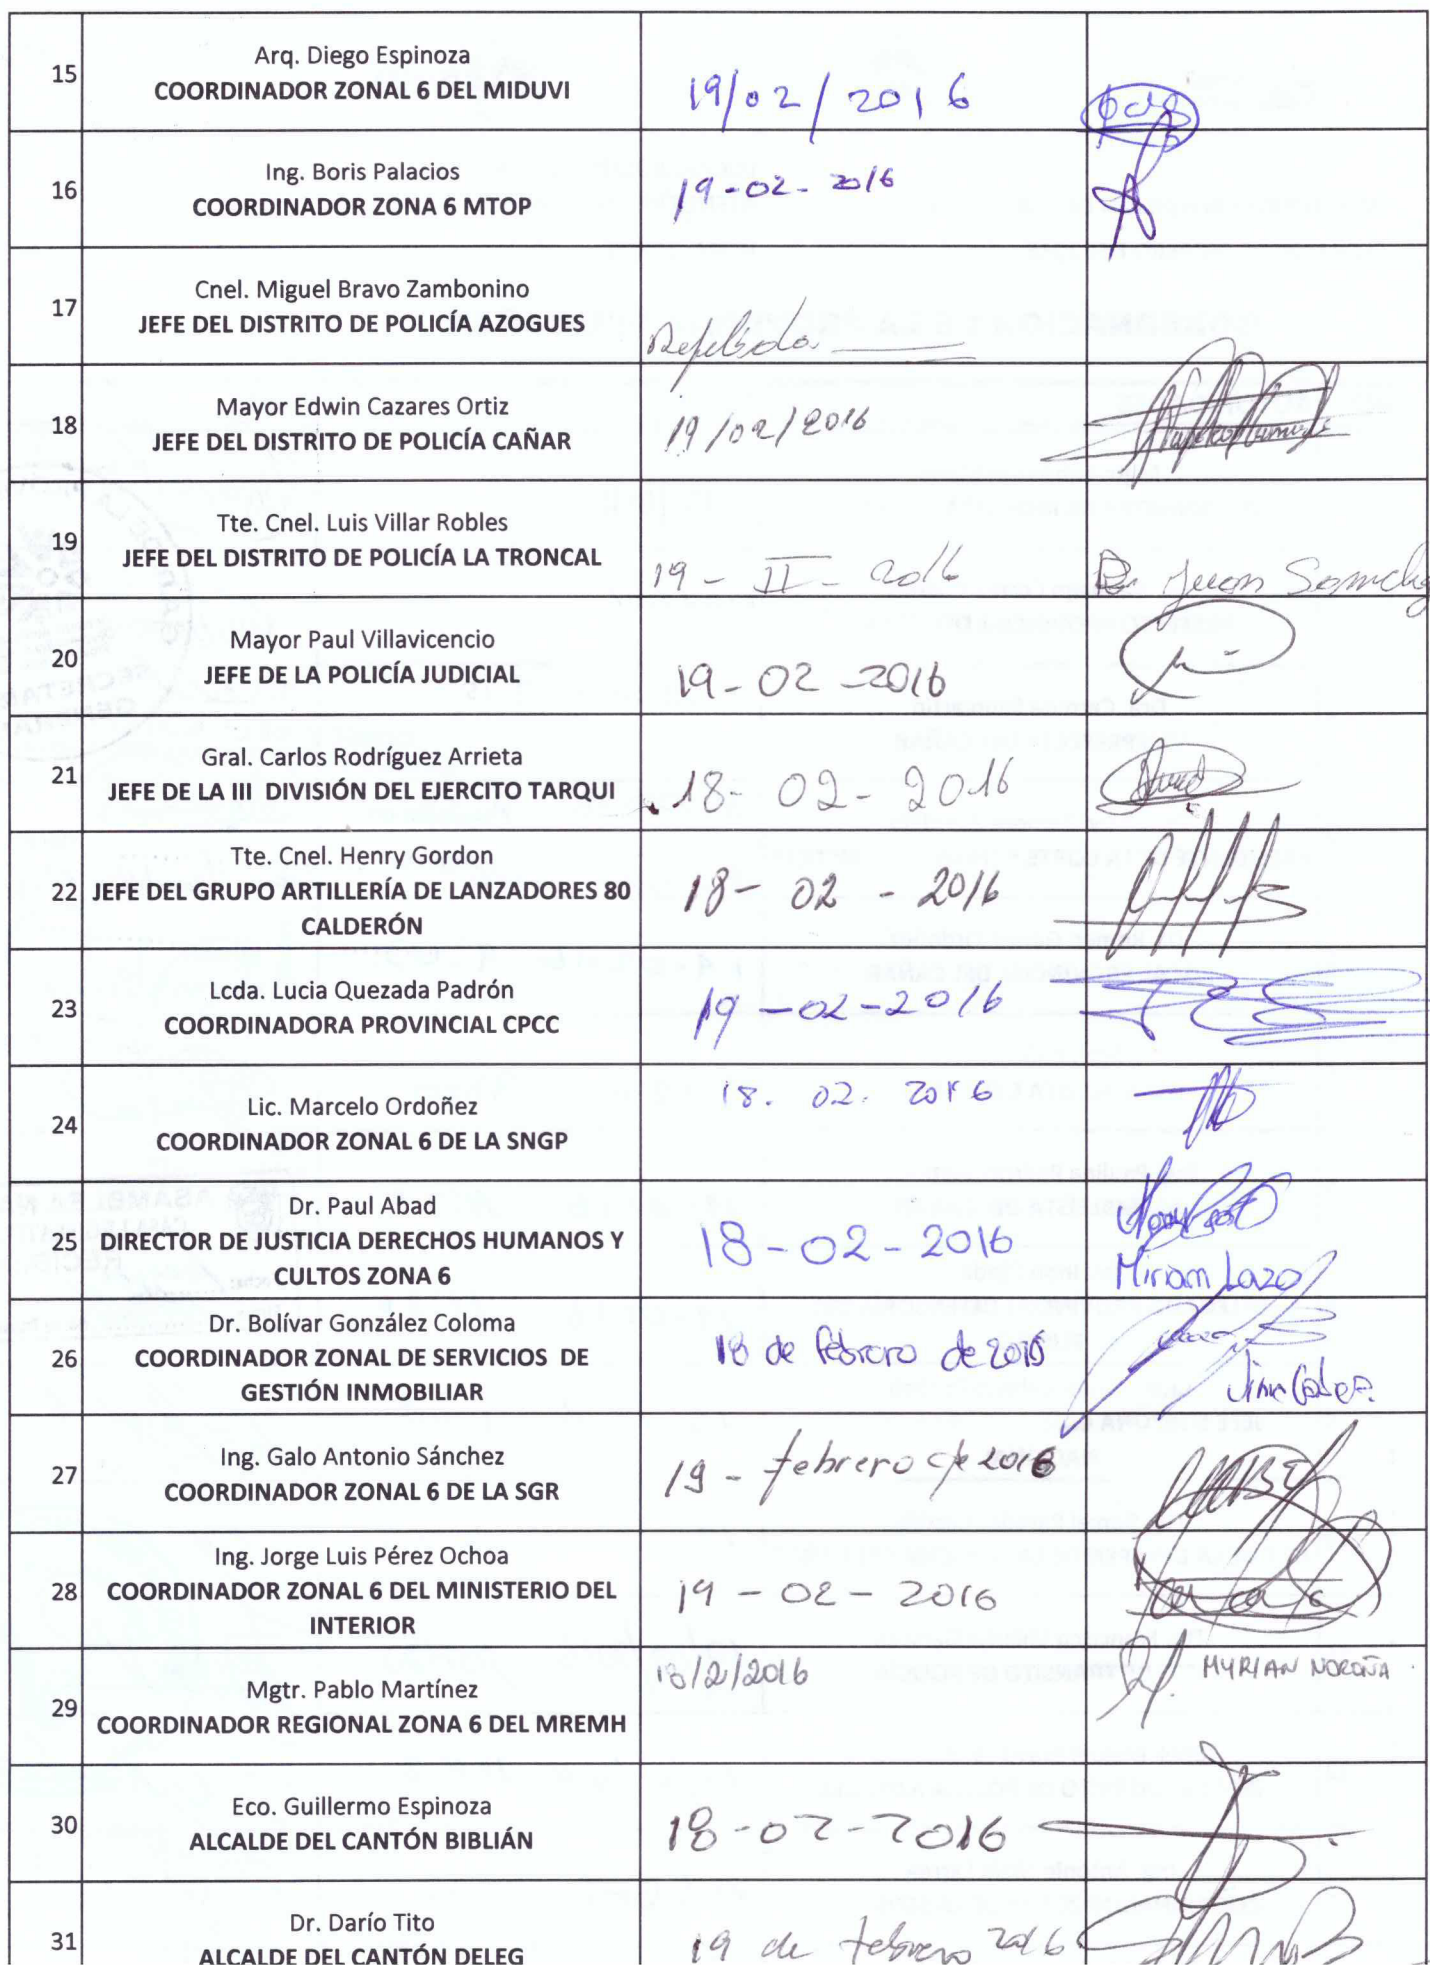 15
Arq. Diego Espinoza
COORDINADOR ZONAL 6 DEL MIDUVI
19/02/2016
16
Ing. Boris Palacios
COORDINADOR ZONA 6 MTOP
19-02-2016
17
Cnel. Miguel Bravo Zambonino
JEFE DEL DISTRITO DE POLICÍA AZOGUES
18
Mayor Edwin Cazares Ortiz
JEFE DEL DISTRITO DE POLICÍA CAÑAR
19/02/2016
19
Tte. Cnel. Luis Villar Robles
JEFE DEL DISTRITO DE POLICÍA LA TRONCAL
19 - II - 2016
Juan
20
Mayor Paul Villavicencio
JEFE DE LA POLICÍA JUDICIAL
19-02-2016
21
Gral. Carlos Rodríguez Arrieta
JEFE DE LA III DIVISIÓN DEL EJERCITO TARQUI
18-02-2016
22
Tte. Cnel. Henry Gordon
JEFE DEL GRUPO ARTILLERÍA DE LANZADORES 80
CALDERÓN
18-02-2016
23
Lcda. Lucia Quezada Padrón
COORDINADORA PROVINCIAL CPCC
19-02-2016
24
Lic. Marcelo Ordoñez
COORDINADOR ZONAL 6 DE LA SNGP
18. 02. 2016
25
Dr. Paul Abad
DIRECTOR DE JUSTICIA DERECHOS HUMANOS Y
CULTOS ZONA 6
18-02-2016
Miriam Lazo
26
Dr. Bolívar González Coloma
COORDINADOR ZONAL DE SERVICIOS DE
GESTIÓN INMOBILIAR
18 de febrero de
27
Ing. Galo Antonio Sánchez
COORDINADOR ZONAL 6 DE LA SGR
19 - febrero de 2016
28
Ing. Jorge Luis Pérez Ochoa
COORDINADOR ZONAL 6 DEL MINISTERIO DEL
INTERIOR
19-02-2016
29
Mgtr. Pablo Martínez
COORDINADOR REGIONAL ZONA 6 DEL MREMH
18/2/2016
MYRIAN NOROÑA
30
Eco. Guillermo Espinoza
ALCALDE DEL CANTÓN BIBLIÁN
18-02-2016
31
Dr. Darío Tito
ALCALDE DEL CANTÓN DELEG
19 de febrero 2016